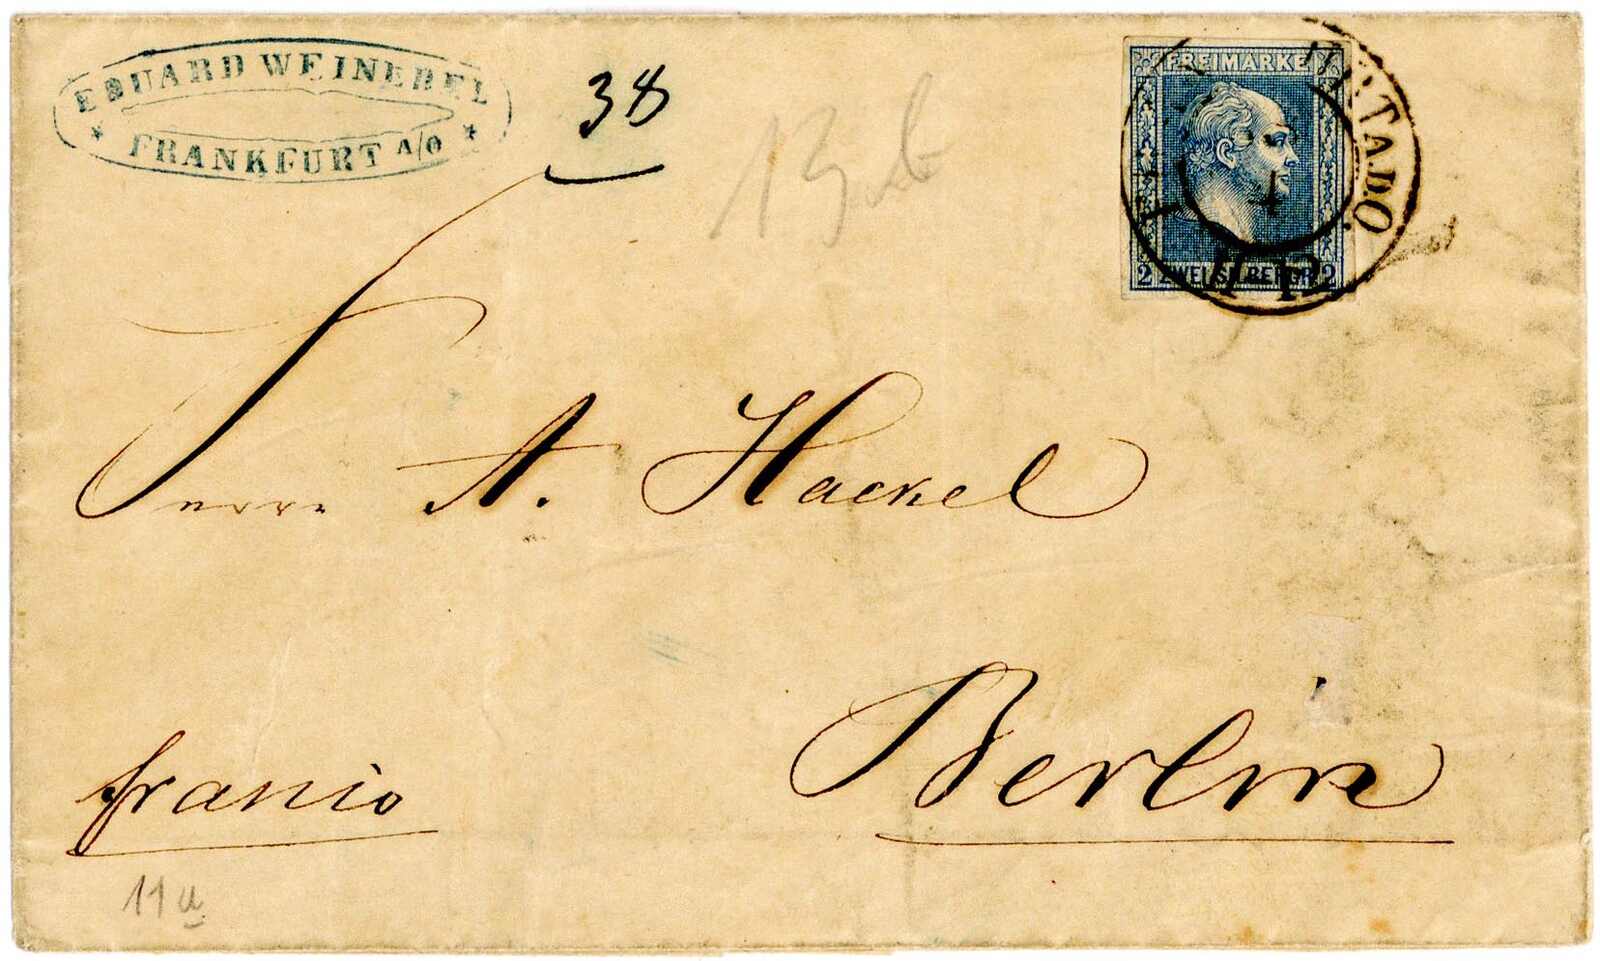 EDUARD WEINEBEL
FRANKFURT A/O
38
13
FREIMARKE
2 ZWEI SILBERGR. 2
Herrn A. Hackel
Berlin
franco
11a